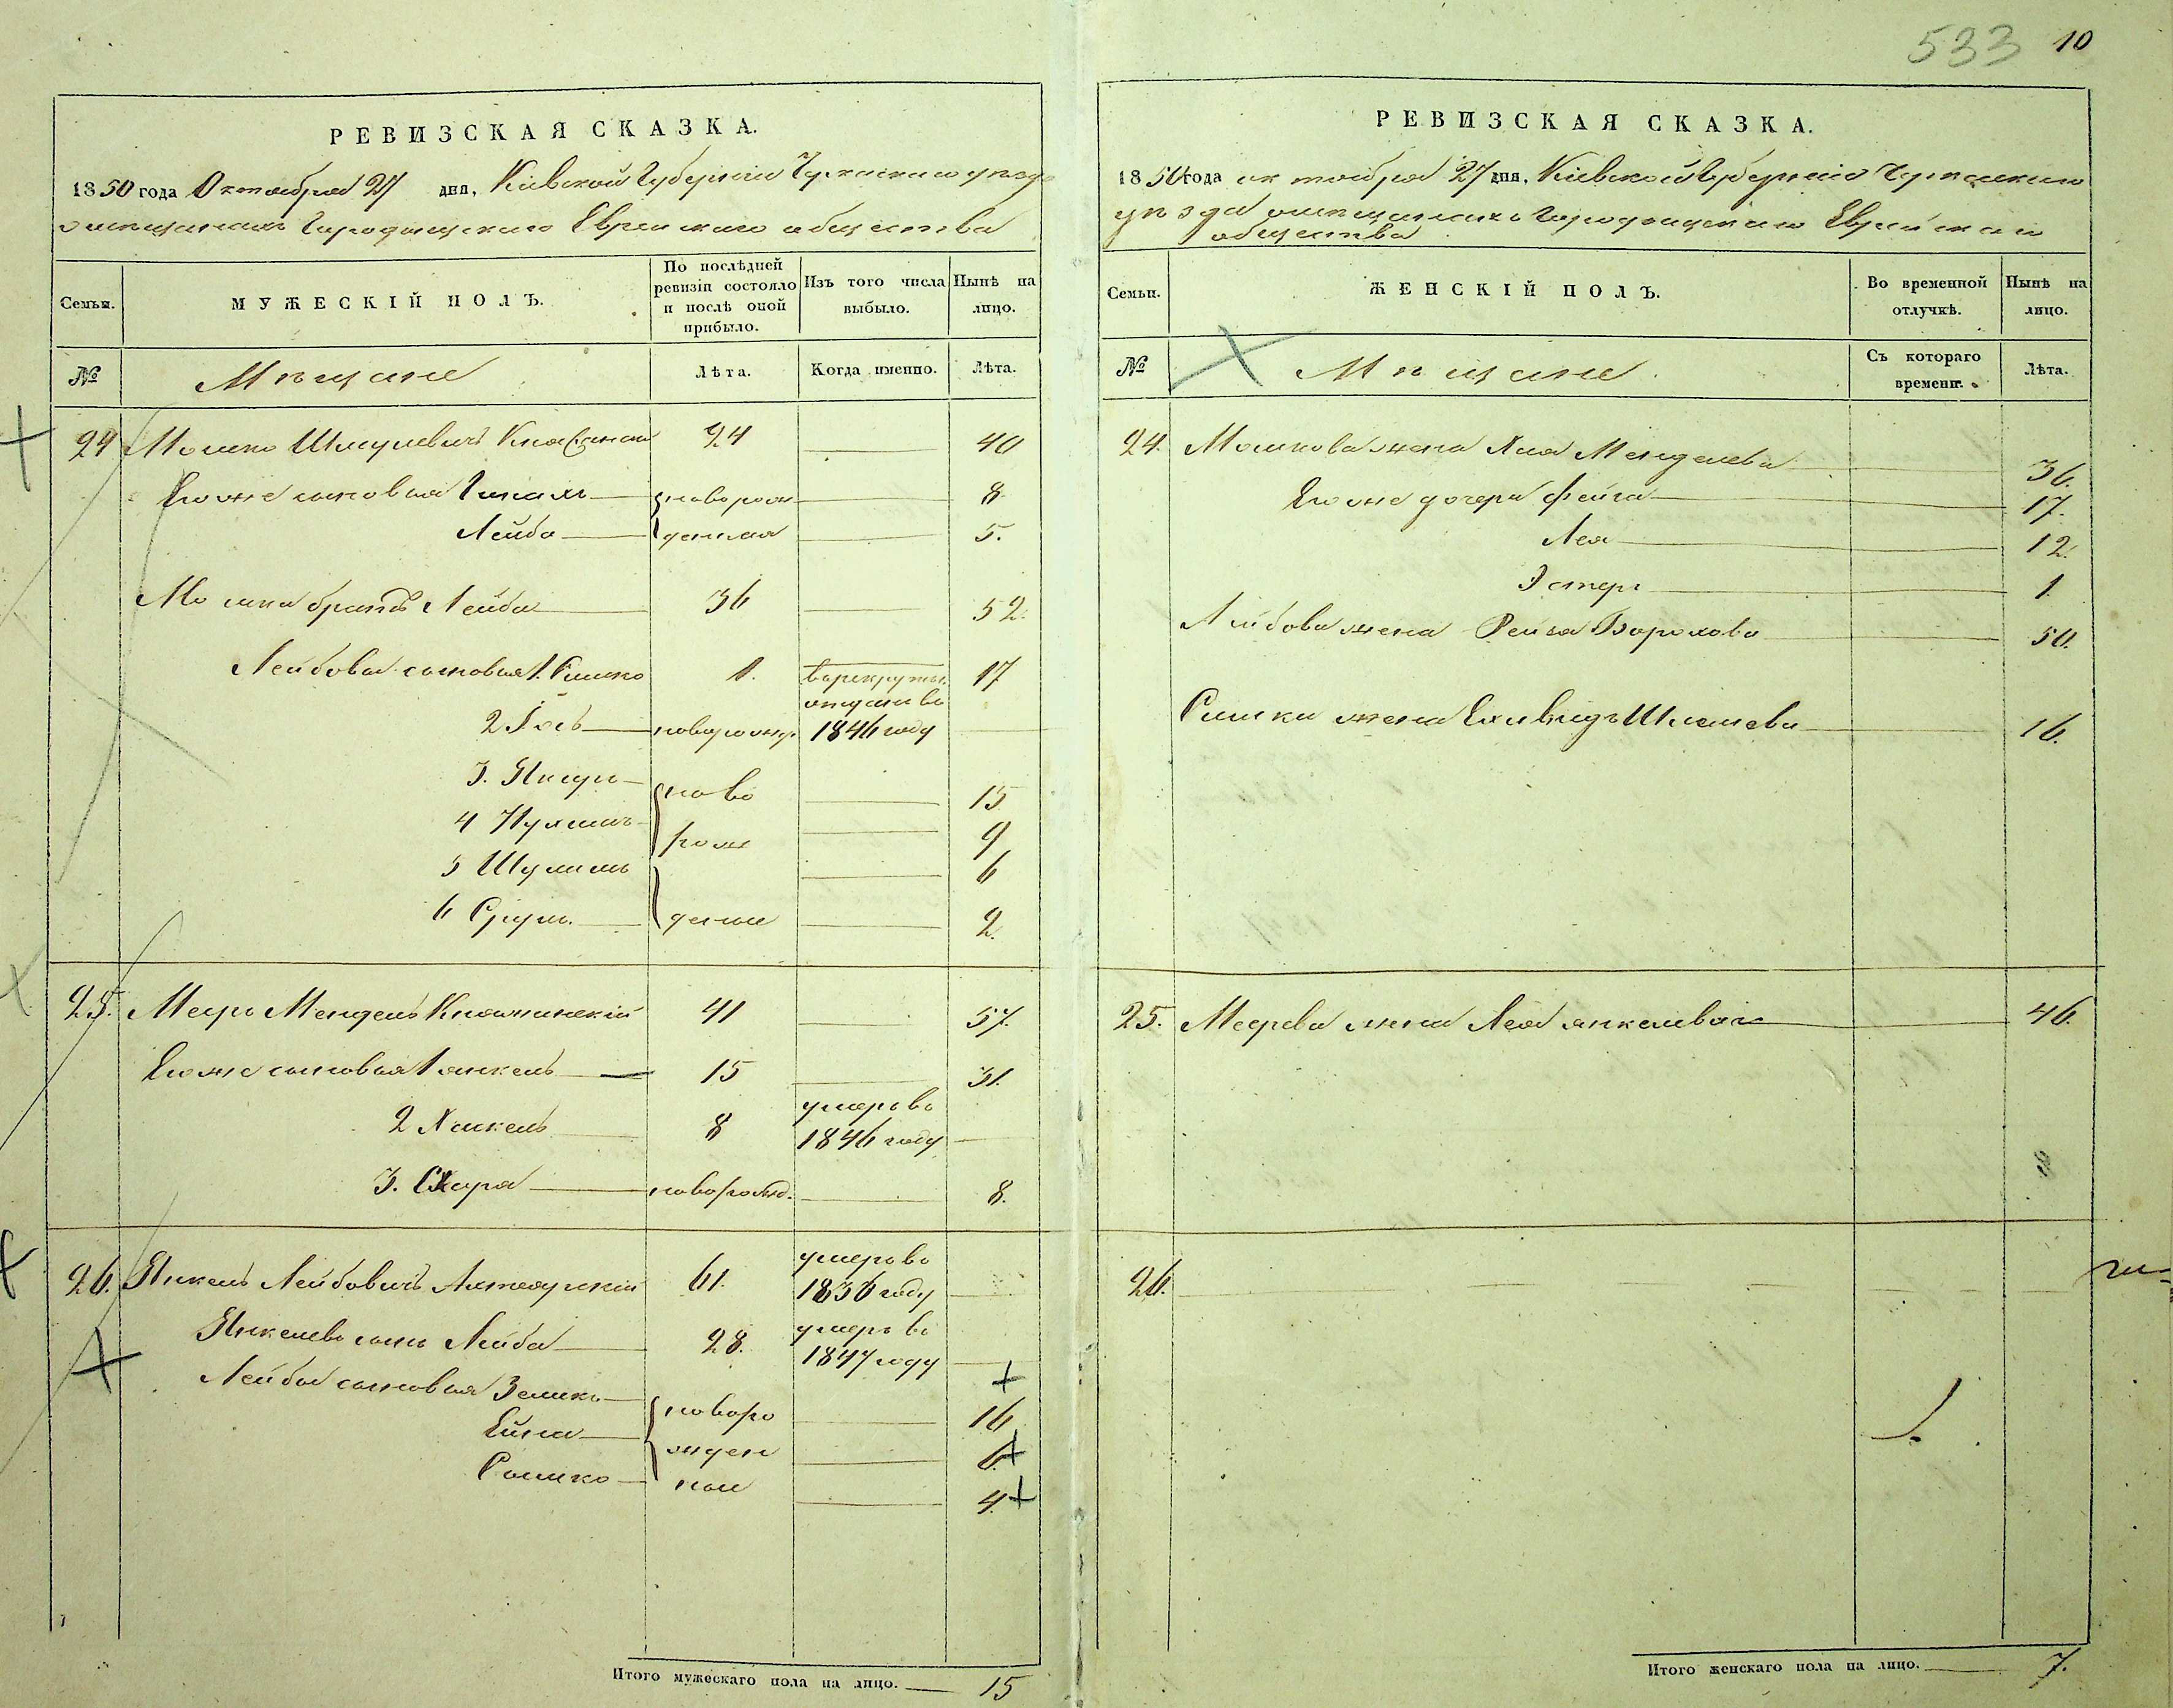 533 10
РЕВИЗСКАЯ СКАЗКА.
1850 года Октября 27 дня, Кіевской Губерніи Черкаскаго уезда
о мещанахъ Городищскаго Еврейскаго общества
Семьи.
МУЖЕСКІЙ ПОЛЪ.
По послѣдней ревизіи состояло и послѣ оной прибыло.
Изъ того числа выбыло.
Нынѣ на лицо.
№ Мещане Лѣта. Когда именно. Лѣта.
24 Мошко Шмулевичъ 24 40
Его же сыновья новорож 8
Лейба денные 5.
Мошка братъ Лейба 36 52.
Лейбовы сыновья 1. 1. в рекруты 17
отданъ во
2 Іось новорожд. 1846 году
3. ново 15
4 Нухимъ рож 9
5 Шулимъ 6
6 Сруль денные 2.
25. Мееръ Мендель 41 57.
Его же сыновья 1 Янкель 15 31.
умеръ во
2 Хаскель 8 1846 году
3. новорожд. 8.
умеръ во
26. Янкель Лейбовичъ 61. 1836 году
Янкелевъ сынъ Лейба 28. умеръ въ
1847 году
Лейбы сыновья Зеликъ новоро 16
жден 6.
ные 4.
Итого мужескаго пола на лицо. 15
РЕВИЗСКАЯ СКАЗКА.
1850 года октября 27 дня, Кіевской Губерніи Черкаскаго
уезда о мещанахъ Городищскаго Еврейскаго
общества
Семьи.
ЖЕНСКІЙ ПОЛЪ.
Во временной отлучкѣ.
Нынѣ на лицо.
№ Мещане Съ котораго времени. Лѣта.
24. Мошкова жена Хая Менделева 36.
Его же дочери Фейга 17.
Лея 12.
Эстеръ 1.
Лейбова жена Рейза Борохова 50.
жена 16.
25. Меерова жена Лея Янкелева 46.
26.
Итого женскаго пола на лицо. 7.